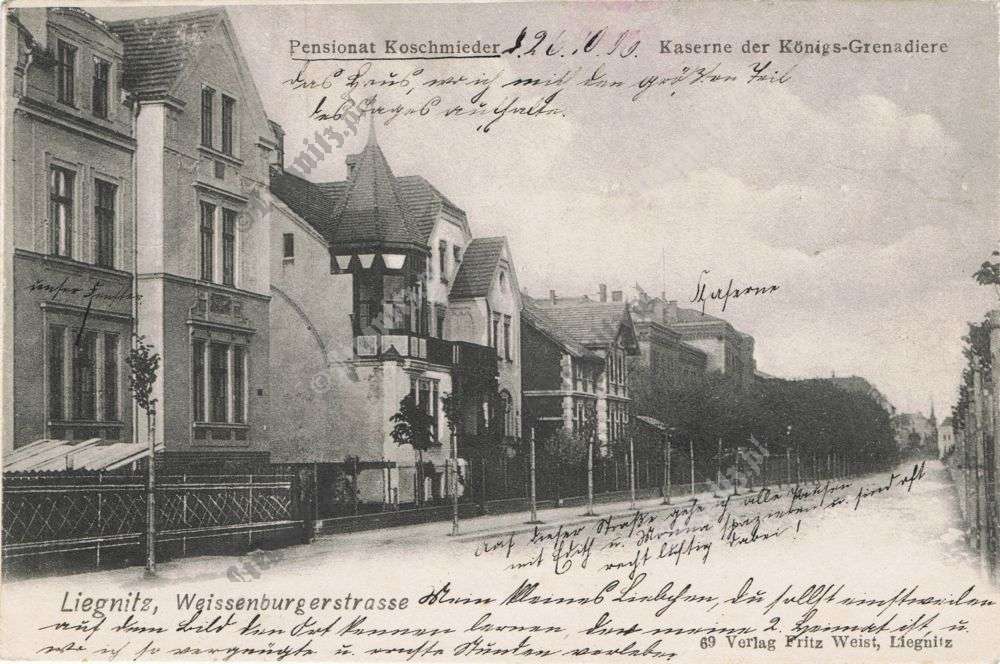 Pensionat Koschmieder d. 26. 10. 03. Kaserne der Königs-Grenadiere
Das Haus, wo ich mich den größten Teil
des Tages aufhalte.
Kaserne
unser Fenster
Auf dieser Straße gehe ich alle Pausen
mit Edith u. spazieren u. sind oft
recht lustig dabei!
Liegnitz, Weissenburgerstrasse Mein kleines Liebchen, du sollst einstweilen
auf dem Bild den Ort kennen lernen, der meine 2. Heimat ist u.
wo ich so vergnügte u. ernste Stunden verlebe.
69 Verlag Fritz Weist, Liegnitz